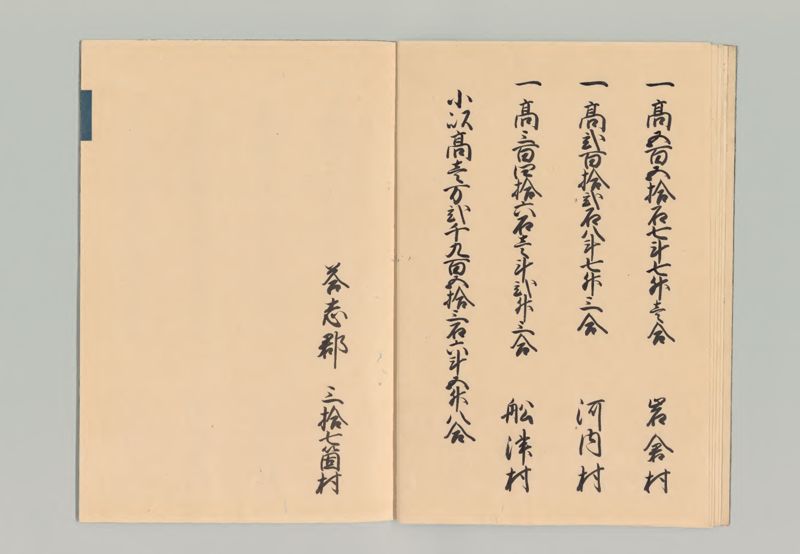 一高五百五拾石七斗七升壱合 岩倉村
一高弐百拾弐石八斗七升三合 河内村
一高三百四拾六石壱斗弐升三合 船津村
小以高壱万弐千九百五拾三石六斗五升八合
答志郡 三拾七箇村